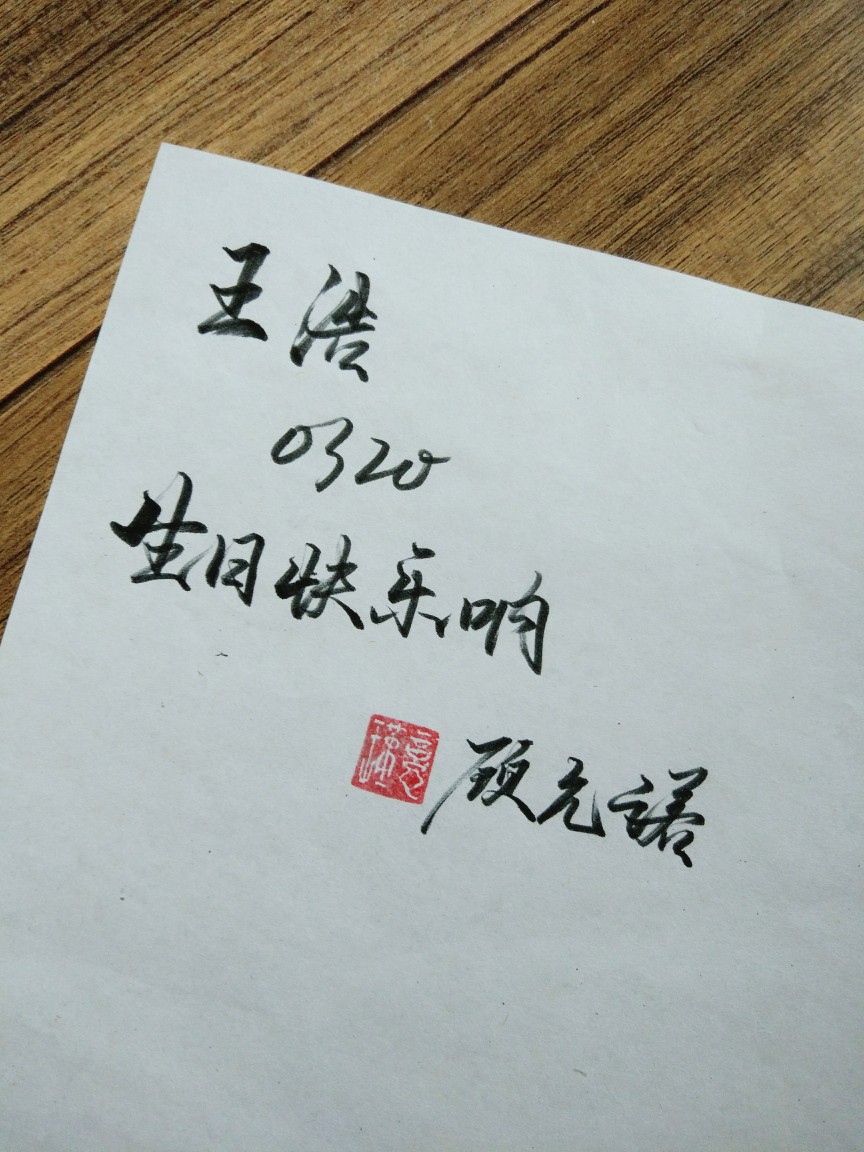 王浩
0320
生日快乐哟
顾允诺